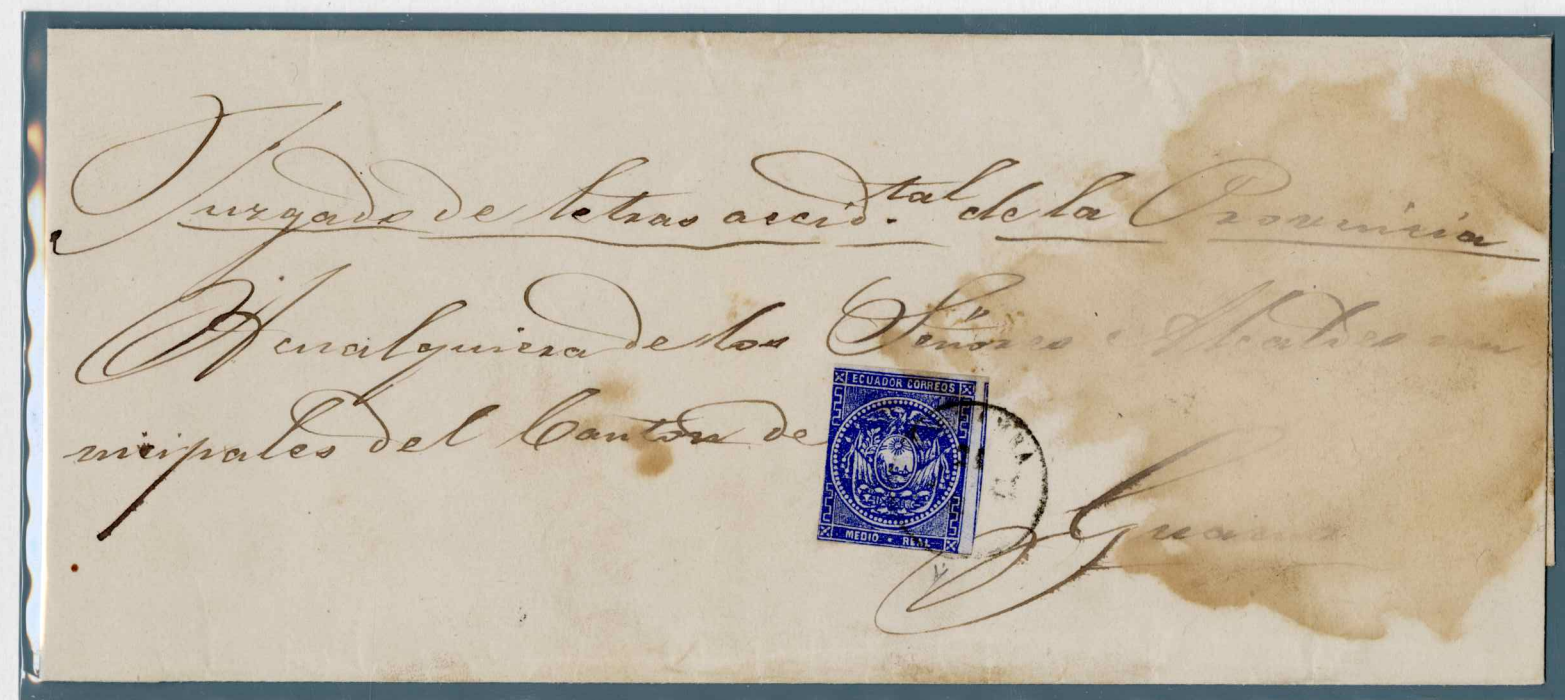 Juzgado de letras accid.tal de la Provincia
A cualquiera de los Señores Alcaldes mu
nicipales del Canton de
ECUADOR CORREOS
MEDIO REAL
Guano